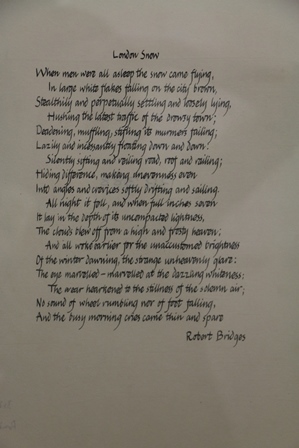 London Snow
When men were all asleep the snow came flying,
In large white flakes falling on the city brown,
Stealthily and perpetually settling and loosely lying,
Hushing the latest traffic of the drowsy town;
Deadening, muffling, stifling its murmurs failing;
Lazily and incessantly floating down and down:
Silently sifting and veiling road, roof and railing;
Hiding difference, making unevenness even
Into angles and crevices softly drifting and sailing.
All night it fell, and when full inches seven
It lay in the depth of its uncompacted lightness,
The clouds blew off from a high and frosty heaven;
And all woke earlier for the unaccustomed brightness
Of the winter dawning, the strange unheavenly glare:
The eye marvelled - marvelled at the dazzling whiteness;
The ear hearkened to the stillness of the solemn air;
No sound of wheel rumbling nor of foot falling,
And the busy morning cries came thin and spare
Robert Bridges